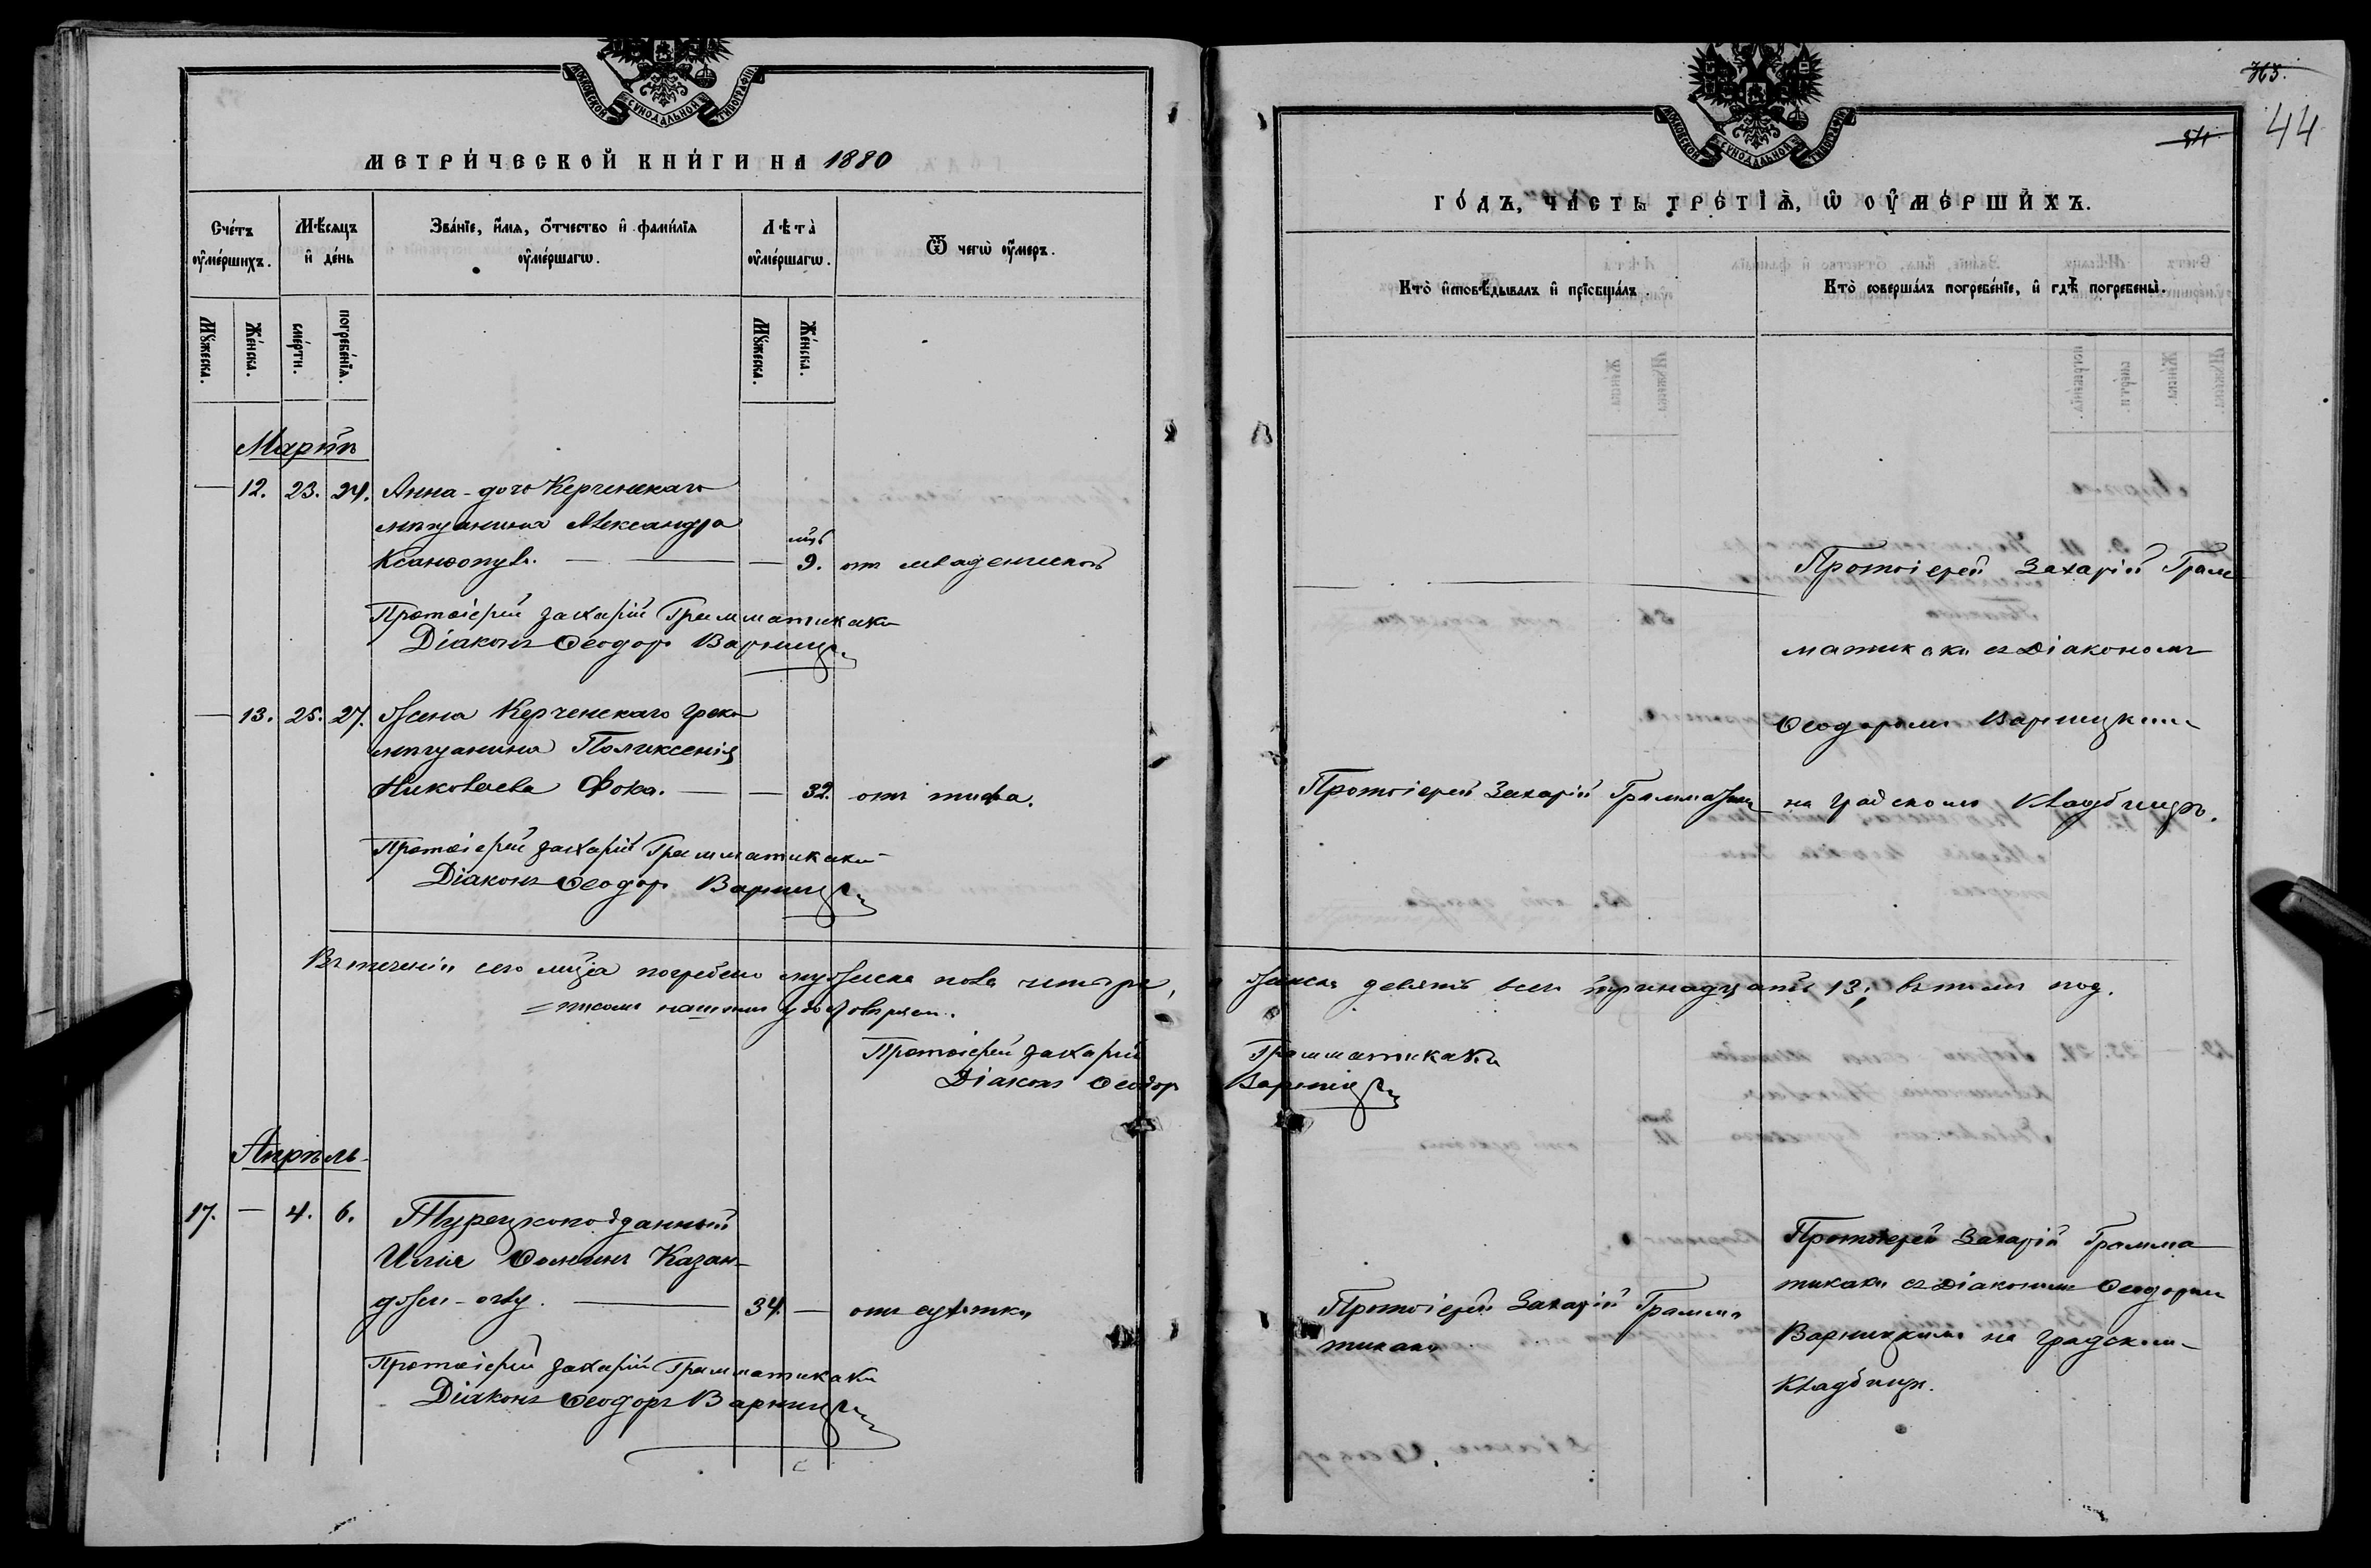 МОСКОВСКОЙ СѴНОДАЛЬНОЙ ТИПОГРАФІИ
МЕТРИ́ЧЕСКОЙ КНИ́ГИ НА 1880
Сче́тъ ᲂу҆ме́ршихъ.
Мѣ́сяцъ и҆ де́нь
Зва́нїе, и҆́мя, ѻ҆́тчество и҆ фами́лїя ᲂу҆ме́ршагѡ.
Лѣта̀ ᲂу҆ме́ршагѡ.
Ѿ чегѡ̀ ᲂу҆́меръ.
Мꙋ́жеска.
Же́нска.
сме́рти.
погребе́нїя.
Мꙋ́жеска.
Же́нска.
Мартъ
— 12. 23. 24. Анна - дочь Керченскаго
мѣщанина Александра
мѣс
Ксанѳопула. — — 9. отъ младенческой
Протоіерей Захарій Грамматикаки
Діаконъ Ѳеодоръ Варницкій
— 13. 25. 27. Жена Керченскаго грека
мѣщанина Поликсенія
Николаева Фока. — — 32. отъ тифа.
Протоіерей Захарій Грамматикаки
Діаконъ Ѳеодоръ Варницкій
Въ теченіи сего мѣсяца погребено мужеска пола четыре,
женска девять всего тринадцать 13; въ томъ под-
=писомъ нашимъ удостовѣряемъ.
Протоіерей Захарій Грамматикаки
Діаконъ Ѳеодоръ Варницкій
Апрѣль
17. — 4. 6. Турецкоподданный
Илія Ѳоминъ Казан-
джи-оглу. — 34. — отъ
Протоіерей Захарій Грамматикаки
Діаконъ Ѳеодоръ Варницкій
365.
44
МОСКОВСКОЙ СѴНОДАЛЬНОЙ ТИПОГРАФІИ
ГО́ДЪ, ЧА́СТЬ ТРЕ́ТЇѦ, Ѡ҆ ОУ҆МЕ́РШИХЪ.
Кто̀ и҆сповѣ́дывалъ и҆ прїобща́лъ.
Кто̀ соверша́лъ погребе́нїе, и҆ гдѣ̀ погребены̀.
Протоіерей Захарій Грам
матикаки съ Діакономъ
Ѳеодоромъ Варницкимъ
Протоіерей Захарій Грамматикаки
на градскомъ кладбищѣ.
Протоіерей Захарій Грамма
тикаки
Протоіерей Захарій Грамма
тикаки съ Діакономъ Ѳеодоромъ
Варницкимъ на градскомъ
кладбищѣ.